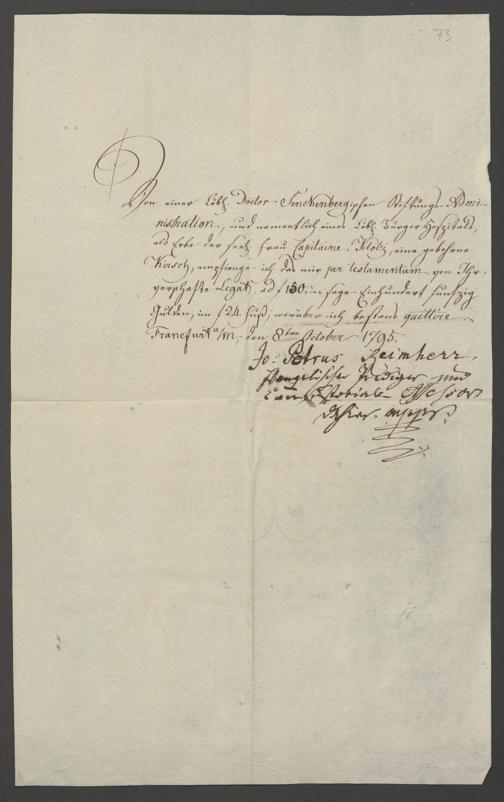 73
Von einer Löbl. Doctor-Senckenbergischen Stiftungs-Admi-
nistration, und namentlich eines Löbl. Bürger Hospitals,
als Erbe der seel. Frau Capitaine Klotz, eine gebohrne
Kirsch, empfange ich das mir per testamentum von Ihr
verschaffte Legat, ad f 150.– sage Einhundert funfzig
Gulden, im f 24. Fuß, worüber ich bestens quittire
Franckfurt a/M. den 8ten October 1795.
Jo: Petrus Reimherr,
Evangelischer Prediger und
Consistorial Assessor
mppr.